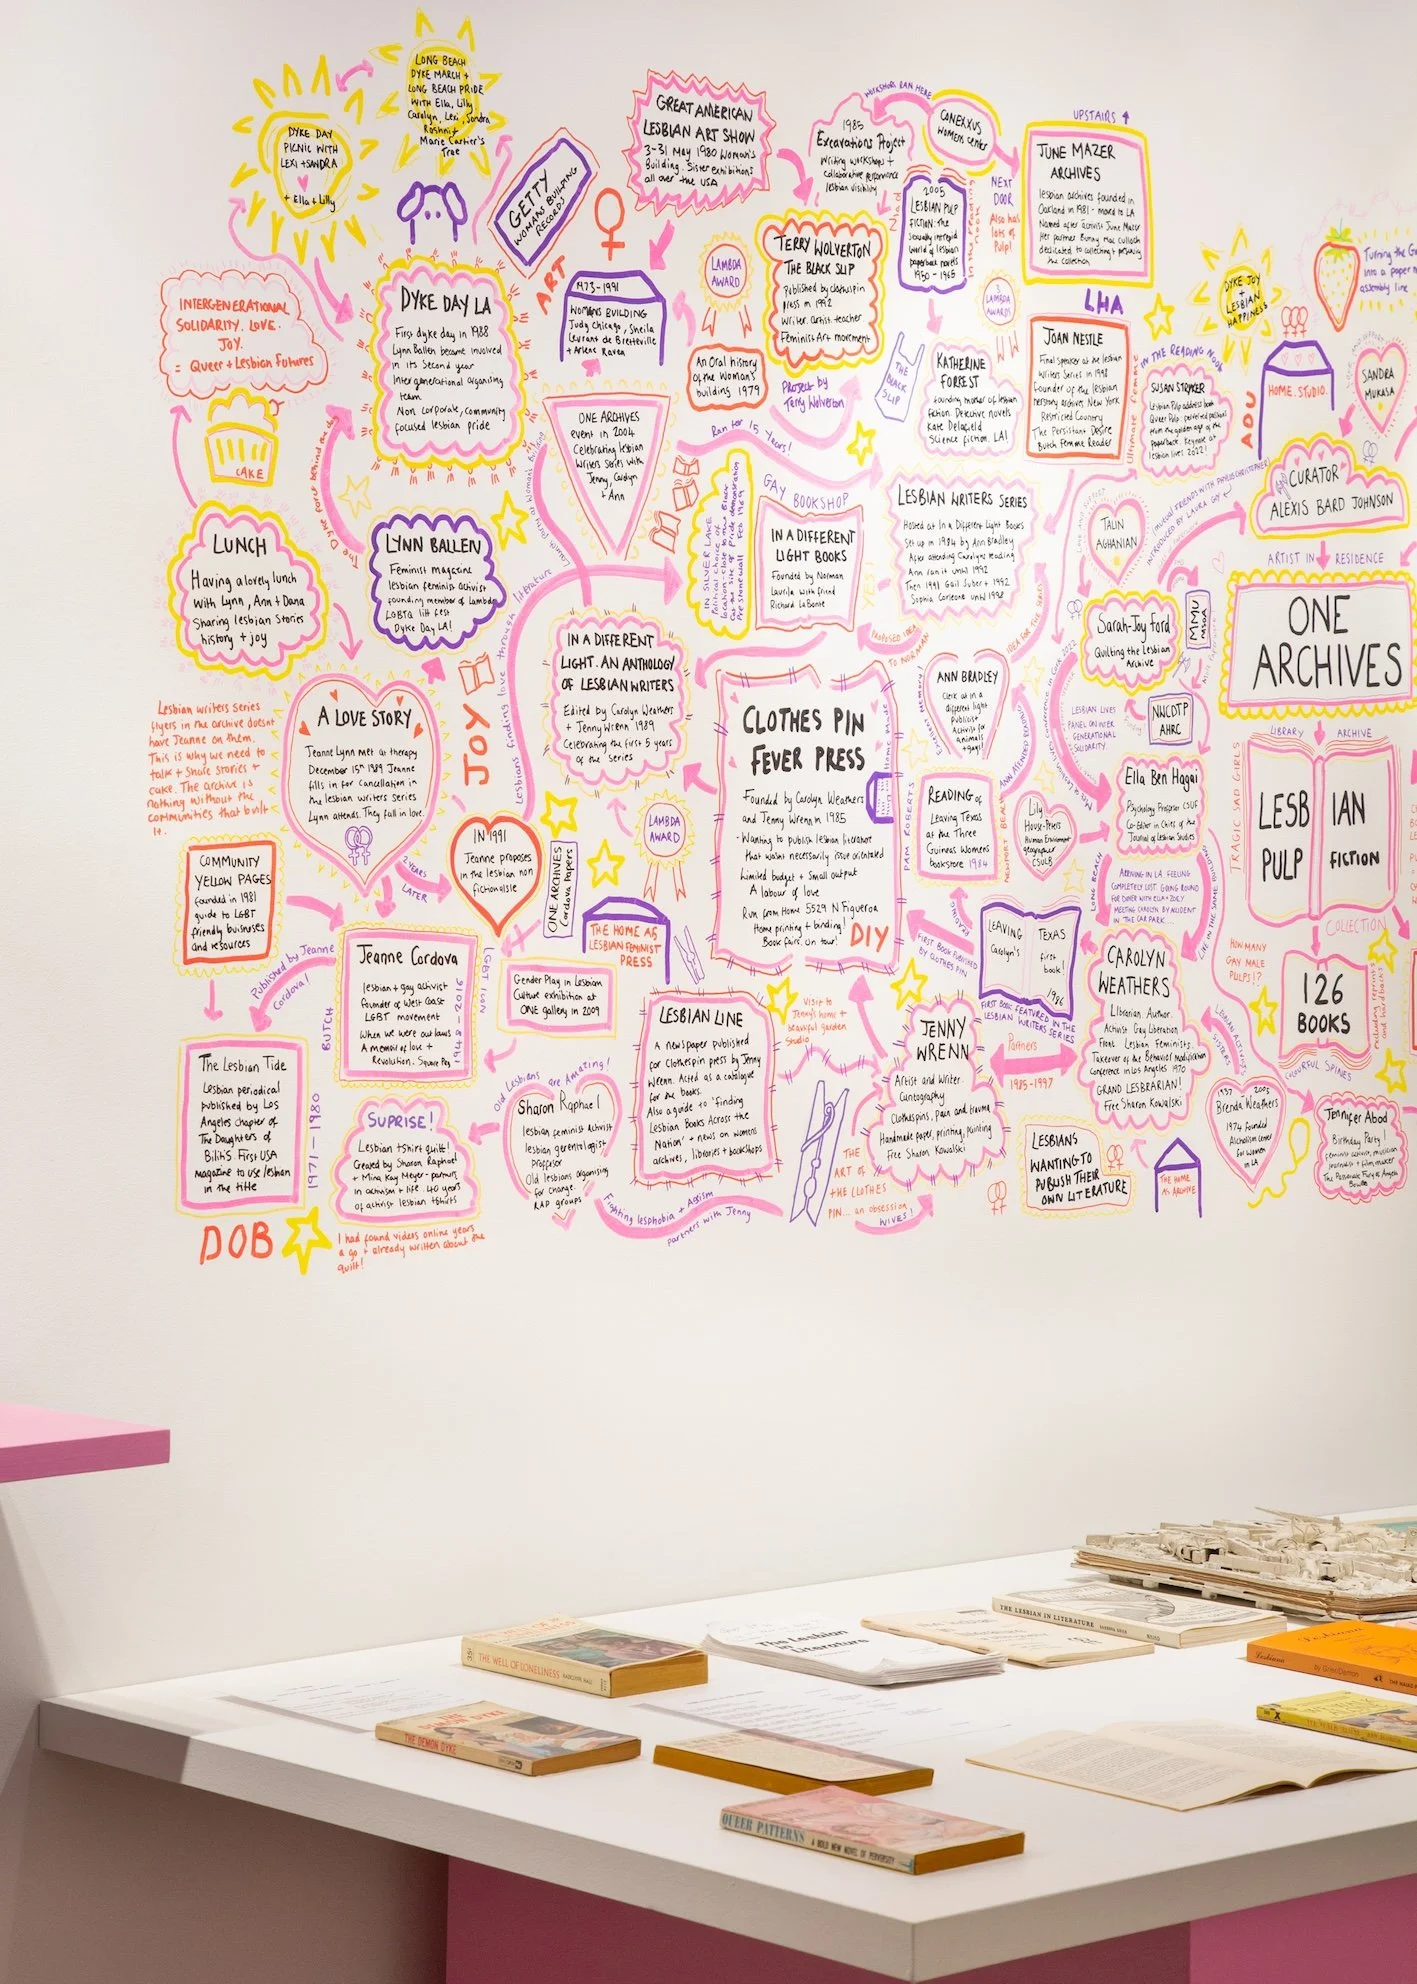 LONG BEACH
DYKE MARCH +
LONG BEACH PRIDE
WITH Ella, Lilly
Carolyn, Lexi, Sandra
Roshni +
Marie Cartier's
Tree
DYKE DAY
PICNIC WITH
LEXI + SANDRA
+ Ella + Lilly
GETTY
WOMANS BUILDING
RECORDS
ART
GREAT AMERICAN
LESBIAN ART SHOW
3-31 May 1980 Woman's
Building. Sister exhibitions
all over the USA
WORKSHOPS RAN HERE
1985
Excavations Project
Writing workshops +
collaborative performance
lesbian visibility
CONEXXUS
Womens Center
UPSTAIRS
JUNE MAZER
ARCHIVES
lesbian archives founded in
Oakland in 1981 - moved to LA
Named after activist June Mazer
Her partner Bunny Mac culloch
dedicated to collecting + preserving
the collection
NEXT
DOOR
Also has
lots of
Pulp!
2005
LESBIAN PULP
FICTION: the
sexually intrepid
world of lesbian
paperback novels
1950-1965
Naiad
in the reading nook
INTERGENERATIONAL
SOLIDARITY. LOVE.
JOY.
= Queer + Lesbian futures
DYKE DAY LA
First dyke day in 1988
Lynn Ballen became involved
in its second year
Intergenerational organising
team.
Non corporate, community
focused lesbian pride
1973-1991
WOMANS BUILDING
Judy Chicago, Sheila
Levrant de Bretteville
+ Arlene Raven
LAMBDA
AWARD
TERRY WOLVERTON
THE BLACK SLIP
Published by clothespin
press in 1992
Writer. Artist. teacher
Feminist Art movement
An Oral history
of the Woman's
building 1979
Project by
Terry Wolverton
THE
BLACK
SLIP
3
LAMBDA
AWARDS
KATHERINE
FORREST
founding mother of lesbian
fiction Detective novels
Kate Delafield
Science fiction. LA!
LHA
JOAN NESTLE
Final speaker at the lesbian
Writers Series in 1998
Founder of the lesbian
herstory archive New York
Restricted Country
The Persistant Desire
Butch Femme Reader
Ultimate femme
IN THE READING NOOK
SUSAN STRYKER
Lesbian Pulp address book
Queer Pulp: perverted passions
from the golden age of the
paperback. Keynote at
lesbian lives 2022!
DYKE JOY
+
LESBIAN
HAPPINESS
ADU
HOME. STUDIO.
Turning the G
into a paper
assembly line
SANDRA
MUKASA
CURATOR
ALEXIS BARD JOHNSON
MUTUAL FRIENDS WITH PHYLLIS CHRISTOPHER
INTRODUCED BY LAURA GUY
ARTIST IN RESIDENCE
ONE
ARCHIVES
CAKE
The Dyke force behind the day
ONE ARCHIVES
event in 2004
Celebrating lesbian
Writers Series with
Jenny, Carolyn
+ Ann
Launch party at Womans building
Ran for 15 Years!
IN SILVER LAKE
Political choice of
location - close to the Black
Cat the site of Pride demonstration
Pre stonewall Feb 1969
GAY BOOKSHOP
IN A DIFFERENT
LIGHT BOOKS
Founded by Norman
Laurila with friend
Richard LaBonte
LESBIAN WRITERS SERIES
Hosted at In a Different Light Books
Set up in 1984 by Ann Bradley
After attending Carolyns reading
Ann ran it until 1992
Then 1991 Gail Suber + 1992
Sophia Corleone until 1998
TALIN
AGHANIAN
LUNCH
Having a lovely lunch
with Lynn, Ann + Dana
Sharing lesbian Stories
history + joy
LYNN BALLEN
Feminist magazine
lesbian feminist activist
founding member of Lambda
LGBTQ litt fest
Dyke Day LA!
IN A DIFFERENT
LIGHT. AN ANTHOLOGY
OF LESBIAN WRITERS
Edited by Carolyn Weathers
+ Jenny Wrenn 1989
Celebrating the first 5 years
of the Series
Lesbians finding love through literature
PROPOSED IDEA
TO NORMAN
IDEA FOR THE SERIES
ANN BRADLEY
Clerk at in a
different light
publicist
Activist for
animals
+ gays!
Sarah-Joy Ford
Quilting the Lesbian
Archive
MMU
NWCDTP
AHRC
LESBIAN LIVES
PANEL ON INTER
GENERATIONAL
SOLIDARITY.
Lesbian writers series
flyers in the archive doesnt
have Jeanne on them.
This is why we need to
talk + share stories +
cake. The archive is
nothing without the
communities that built
it.
A LOVE STORY
Jeanne Lynn met at therapy
December 15th 1989 Jeanne
fills in for cancellation in
the lesbian writers Series
Lynn attends. They fall in love.
JOY
2 YEARS
LATER
IN 1991
Jeanne proposes
in the lesbian non
fiction aisle
LAMBDA
AWARD
CLOTHES PIN
FEVER PRESS
Founded by Carolyn Weathers
and Jenny Wrenn in 1985
- Wanting to publish lesbian literature
that wasnt necessarily issue orientated
Limited budget + small output
A labour of love
Run from Home 5529 N Figueroa
Home printing + binding!
Book fairs. On tour!
DIY
Home Made
PAM ROBERTS
READING of
Leaving Texas
at the Three
Guineas Womens
bookstore 1984
ANN ATTENDED READING
NEWPORT BEACH
Lily
House-Peters
Human Environment
geographer
CSULB
Ella Ben Hagai
Psychology Professor CSUF
Co-Editor in Chief of the
Journal of Lesbian Studies
LONG BEACH
ARRIVING IN LA FEELING
COMPLETELY LOST. GOING ROUND
FOR DINNER WITH ELLA + ZOEY
MEETING CAROLYN BY ACCIDENT
IN THE CAR PARK...
LIVE IN THE SAME BUILDING!
TRAGIC SAD GIRLS
LIBRARY
ARCHIVE
LESBIAN
PULP
FICTION
COLLECTION
COMMUNITY
YELLOW PAGES
founded in 1981
guide to LGBT
friendly buisnuses
and resources
Published by Jeanne
Cordova!
BUTCH
Jeanne Cordova
lesbian + gay activist
founder of West Coast
LGBT movement
When we were outlaws
A memoir of love +
Revolution.
1948-2016
LGBT ICON
ONE ARCHIVES
Cordova Papers
THE HOME AS
LESBIAN FEMINIST
PRESS
Gender Play in Lesbian
Culture exhibition at
ONE gallery in 2009
FIRST BOOK PUBLISHED
BY CLOTHES PIN
READING
LEAVING TEXAS
Carolyn's first
book!
1986
FIRST BOOK FEATURED IN THE
LESBIAN WRITERS SERIES
CAROLYN
WEATHERS
Librarian. Author.
Activist Gay Liberation
Front. Lesbian Feminists.
Takeover of the Behavior Modification
Conference in Los Angeles 1970
GRAND LESBRARIAN!
Free Sharon Kowalski
HOW MANY
GAY MALE
PULPS!?
126
BOOKS
COLOURFUL SPINES
Including reprints
and hardbacks
The Lesbian Tide
Lesbian periodical
published by Los
Angeles chapter of
The Daughters of
Bilitis. First USA
magazine to use lesbian
in the title
1971-1980
DOB
SUPRISE!
Lesbian tshirt quilt!
Created by Sharon Raphael
+ Mina Kay Meyer - partners
in activism + life. 40 years
of activist lesbian tshirts
I had found videos online years
ago + already written about the
quilt!
Old Lesbians are Amazing!
Sharon Raphael
lesbian feminist activist
lesbian gerentologist
Professor
Old lesbians organising
for change.
RAP groups
Fighting lesphobia + Ageism
partners with Jenny
LESBIAN LINE
A newspaper published
for Clothespin press by Jenny
Wrenn. Acted as a catalogue
for the books.
Also a guide to 'finding
Lesbian Books Across the
Nation' + news on womens
archives, libraries + bookshops
Visit to
Jenny's home +
beautiful garden
Studio
THE
ART OF
THE CLOTHES
PIN... an obsession
JENNY
WRENN
Artist and Writer
Cuntography
Clothespins, pain and trauma
Handmade paper, printing, painting
Free Sharon Kowalski
WIVES!
Partners
1985-1997
LESBIANS
WANTING TO
PUBLISH THEIR
OWN LITERATURE
THE HOME
AS ARCHIVE
LESBIAN ACTIVIST
SISTERS
1937 2005
Brenda Weathers
1974 founded
Alcoholism center
for women
in LA
Jennifer Abod
Birthday Party!
feminist activist, musician
journalist + film maker
The Passionate Pursuits of Angela
Bowen
THE LESBIAN IN LITERATURE
The Lesbian
in
Literature
35¢
THE WELL OF LONELINESS
RADCLYFFE HALL
THE DEMON DYKE
Lesbiana
by Gene Damon
QUEER PATTERNS
A BOLD NEW NOVEL OF PERVERSITY